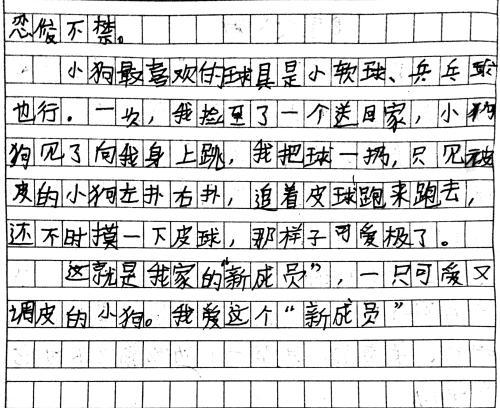 忍俊不禁。
小狗最喜欢的球具是小软球、乒乓球
也行。一次，我捡到了一个送回家，小狗
狗见了向我身上跳，我把球一扔，只见被
皮的小狗左扑右扑，追着皮球跑来跑去，
还不时摸一下皮球，那样子可爱极了。
这就是我家的“新成员”，一只可爱又
调皮的小狗。我爱这个“新成员”